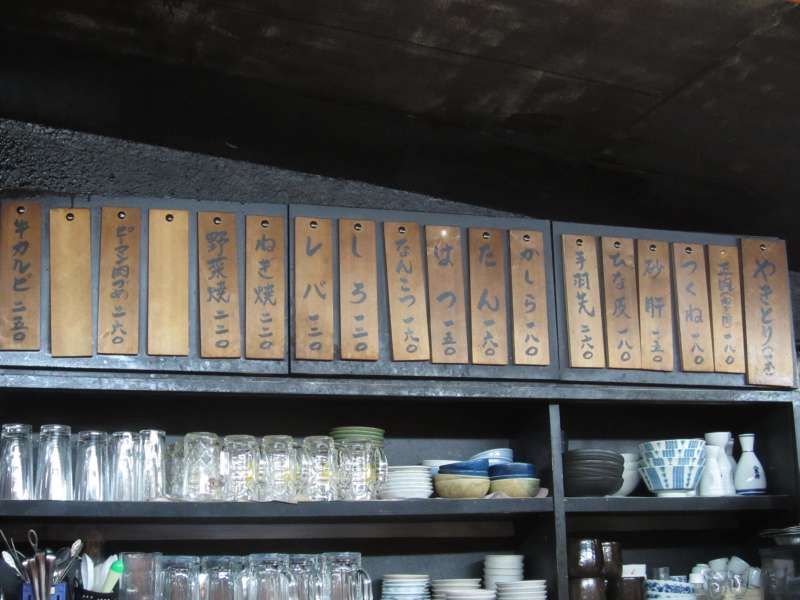 やきとり
正肉 一八〇
つくね 一八〇
砂肝 一五〇
ひな皮 一八〇
手羽先 二六〇
かしら 一八〇
たん 一六〇
はつ 一五〇
なんこつ 一六〇
しろ 一二〇
レバ 一二〇
ねぎ焼 二二〇
野菜焼 二二〇
ピーマン肉づめ 二六〇
牛カルビ 二五〇